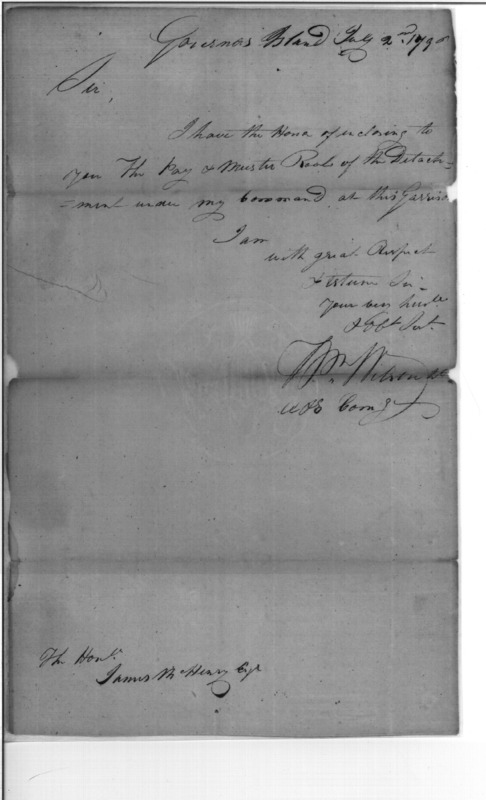 Governors Island July 2nd 1798
Sir,
I have the Honor of inclosing to
you The Pay & Muster Rools of the Detach=
=ment under my Command at this Garriso
I am
with great Respect
& Esteem Sir
your very humle
& Obt Sert.
Wm. Wilson
Comg
The Honl.
James McHenry Esqr